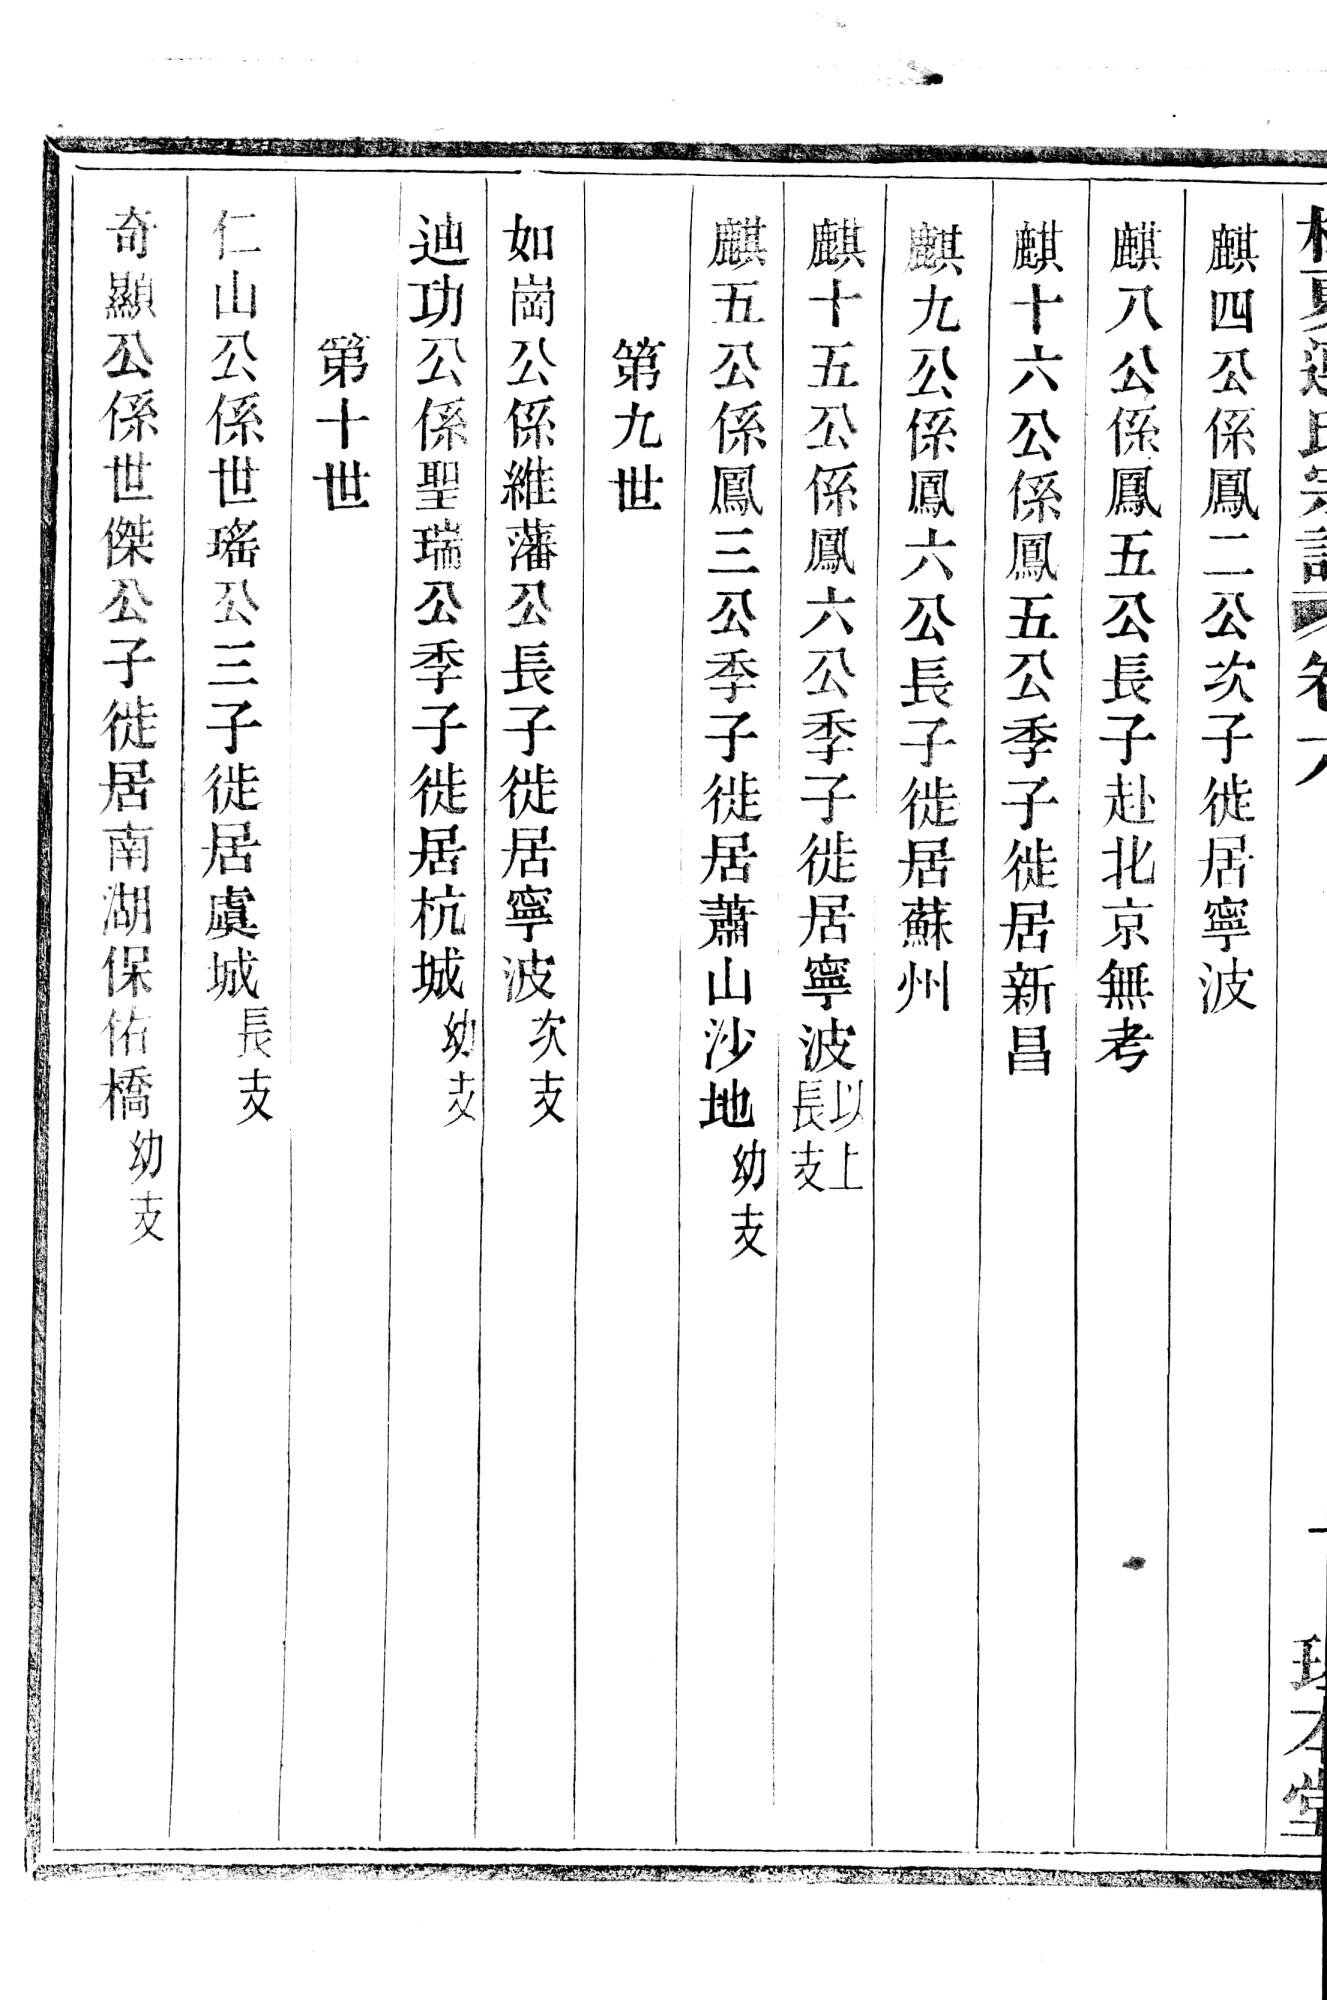 氏宗譜 卷六
本堂
麒四公係鳳二公次子徙居寧波
麒八公係鳳五公長子赴北京無考
麒十六公係鳳五公季子徙居新昌
麒九公係鳳六公長子徙居蘇州
麒十五公係鳳六公季子徙居寧波以上長支
麒五公係鳳三公季子徙居蕭山沙地幼支
第九世
如崗公係維藩公長子徙居寧波次支
迪功公係聖瑞公季子徙居杭城幼支
第十世
仁山公係世瑤公三子徙居虞城長支
奇顯公係世傑公子徙居南湖保佑橋幼支